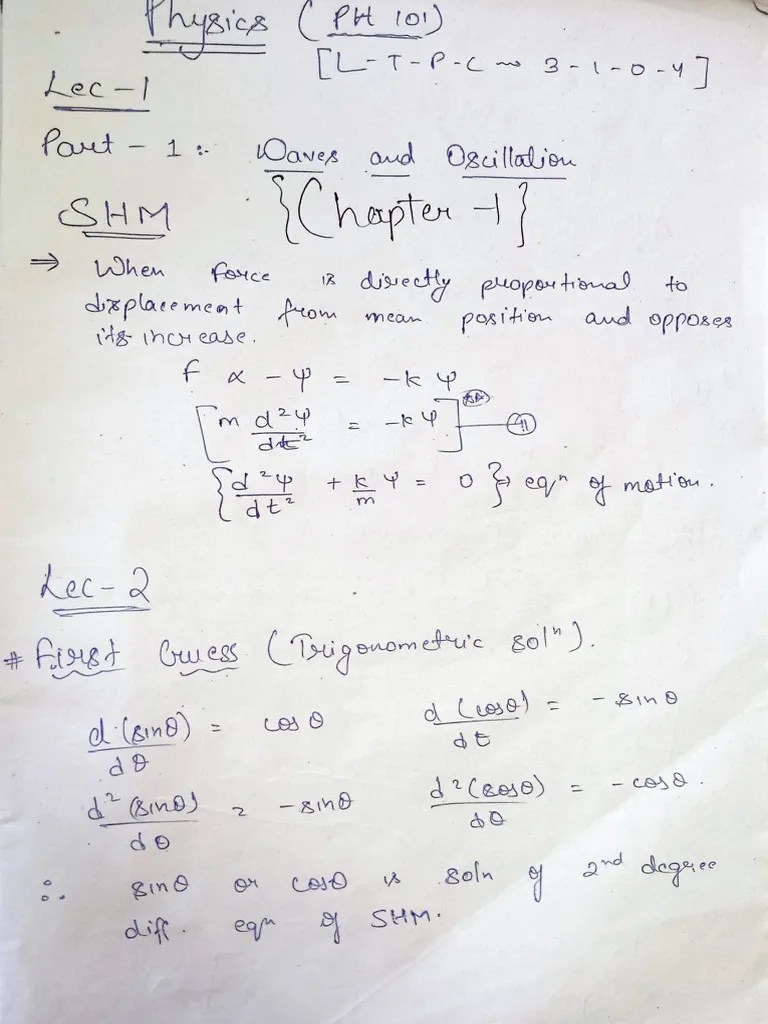 Physics (PH 101)
[L-T-P-C ~ 3-1-0-4]
Lec-1
Part - 1 :- Waves and Oscillation
SHM {Chapter -1}
⇒ When force is directly proportional to
displacement from mean position and opposes
its increase.
f α - ψ = -k ψ
[m d²ψ/dt² = -kψ]
{d²ψ/dt² + k/m ψ = 0} → eqⁿ of motion.
Lec-2
# First Guess (Trigonometric solⁿ).
d(sinθ)/dθ = cosθ d(cosθ)/dt = -sinθ
d²(sinθ)/dθ = -sinθ d²(cosθ)/dθ = -cosθ.
∴ sinθ or cosθ is soln of 2nd degree
diff. eqn of SHM.